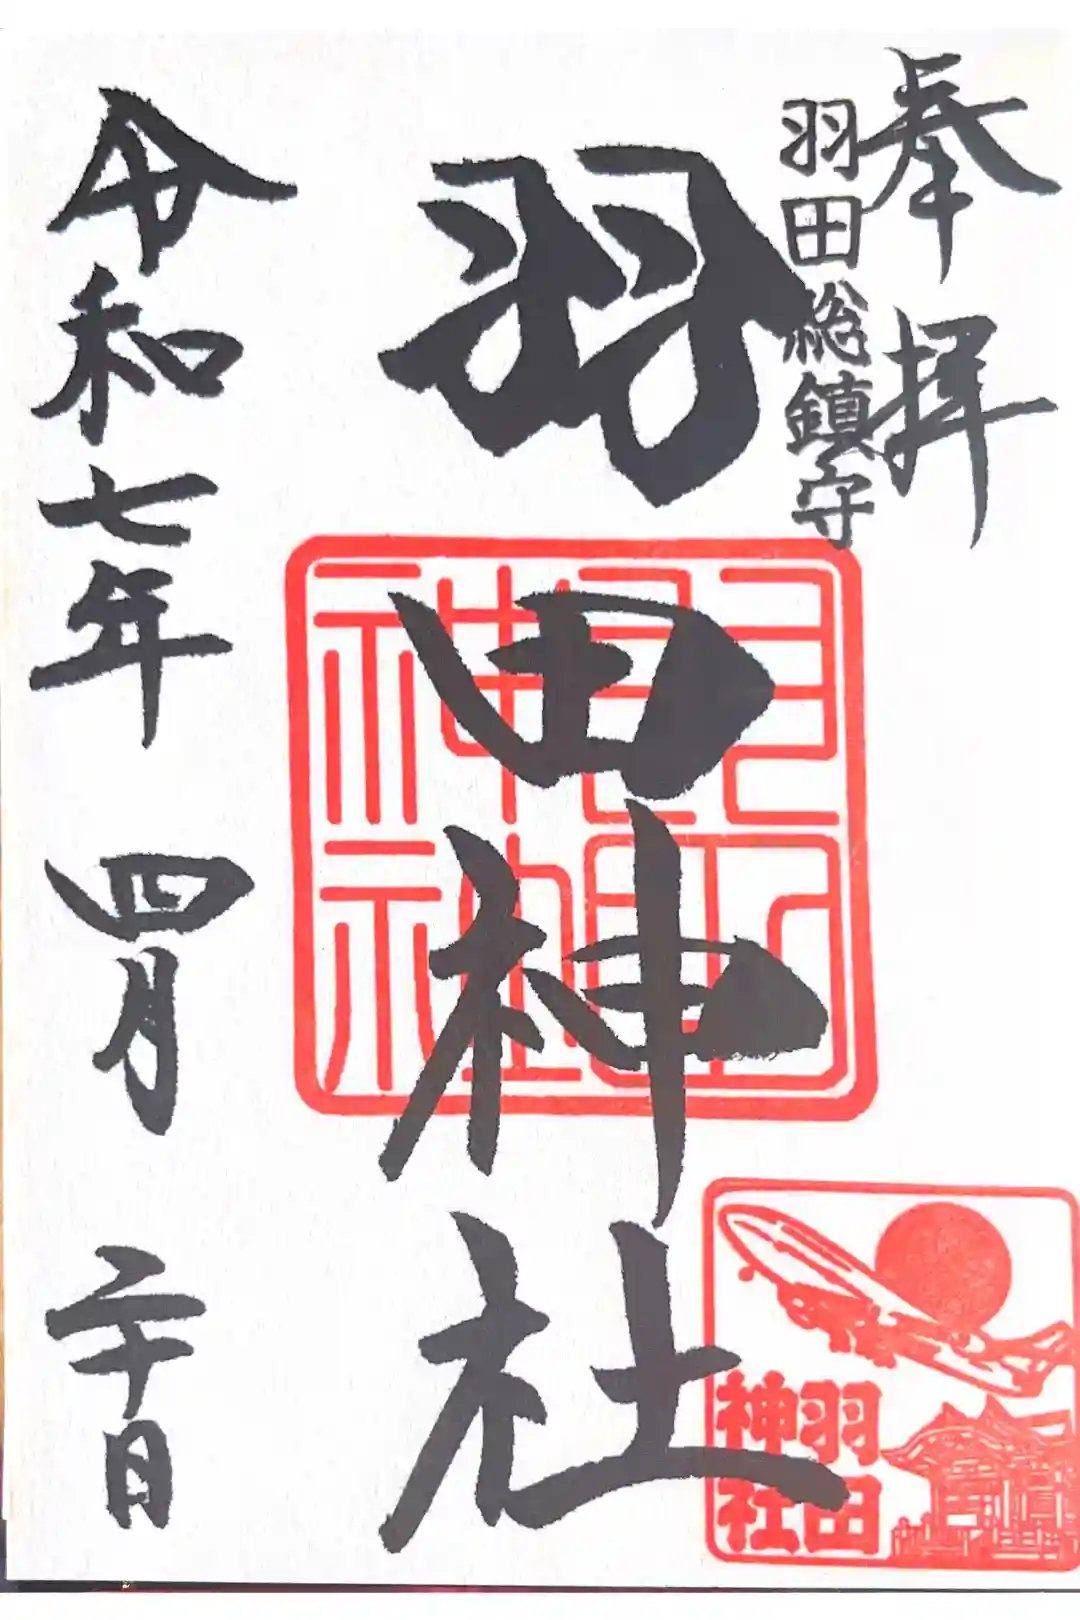 奉拝
羽田総鎮守
羽田神社
羽田神社
令和七年 四月 二十日
羽田
神社